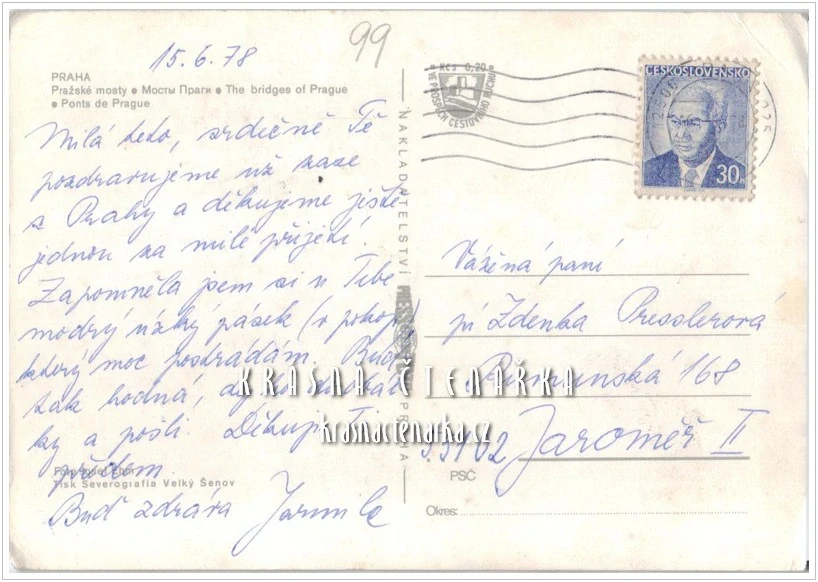 15.6.78
99
PRAHA
Pražské mosty ● Мосты Праги ● The bridges of Prague
● Ponts de Prague
Milá teto, srdečně Tě
pozdravujeme už zase
z Prahy a děkujeme ještě
jednou za milé přijetí.
Zapomněla jsem si u Tebe
modrý úzký pásek (v pokoji)
který moc postrádám. Buď
tak hodná, dej do
ky a pošli. Děkuji Ti
předem.
Buď zdráva Jarmila
Foto Josef
Tisk Severografia Velký Šenov
NAKLADATELSTVÍ PRAHA
Kčs 0,20
VE PROSPĚCH CESTOVNÍHO RUCHU
ČESKOSLOVENSKO
30
Vážená paní
pí Zdenka Presslerová
Rumunská 168
55102 Jaroměř II
PSČ
Okres:
KRÁSNÁ ČTENÁŘKA
krasnactenarka.cz